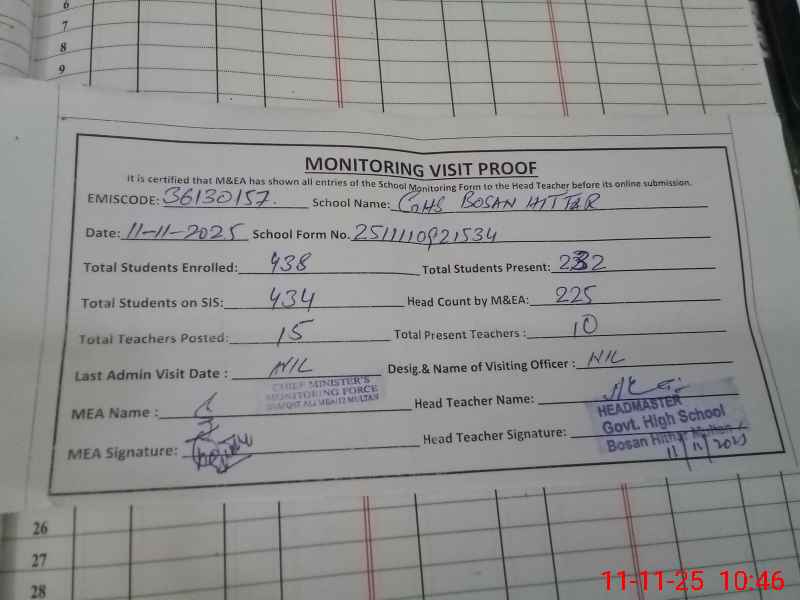 6
7
8
9
MONITORING VISIT PROOF
It is certified that M&EA has shown all entries of the School Monitoring Form to the Head Teacher before its online submission.
EMISCODE: 36130157. School Name: GHS BOSAN HITTAR
Date: 11-11-2025 School Form No. 2511110921534
Total Students Enrolled: 438 Total Students Present: 232
Total Students on SIS: 434 Head Count by M&EA: 225
Total Teachers Posted: 15 Total Present Teachers : 10
Last Admin Visit Date : NIL Desig.& Name of Visiting Officer : NIL
CHIEF MINISTER'S
MONITORING FORCE
MEA Name : Head Teacher Name:
HEADMASTER
Govt. High School
Bosan Hithar Multan
MEA Signature: Head Teacher Signature:
11/11/2025
26
27
28
11-11-25 10:46